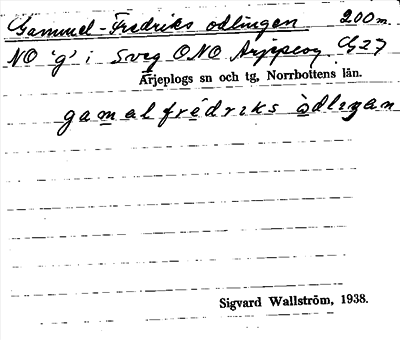 Gammel-Fredriks odlingen 200 m.
NO 'g' i Sveg ONO Arjeplog C27
Arjeplogs sn och tg, Norrbottens län.
gamalfrédriks òdlıŋan
Sigvard Wallström, 1938.